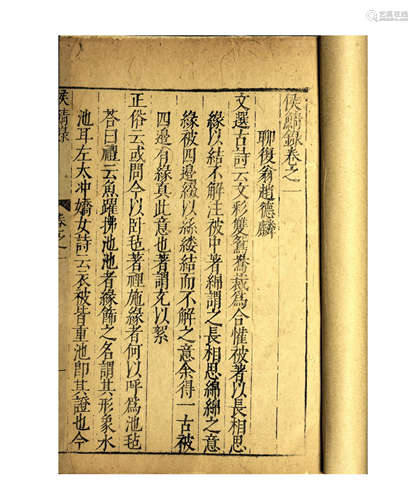 侯鯖錄卷之一
聊復翁趙德麟
文選古詩云文彩雙鴛鴦裁為合懽被著以長相思
緣以結不解注被中著綿謂之長相思綿綿之意
緣被四邊綴以絲縷結而不解之意余得一古被
四邊有緣真此意也著謂充以絮
正俗云或問今以卧毡著裡施緣者何以呼為池毡
荅曰禮云魚躍拂池池者緣飾之名謂其形象水
池耳左太冲嬌女詩云衣被皆重池即其證也今
侯鯖錄
卷之一